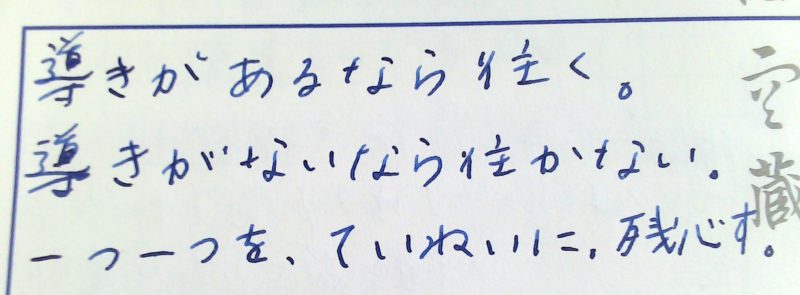 導きがあるなら往く。
導きがないなら往かない。
一つ一つを、ていねいに、残心す。
空蔵